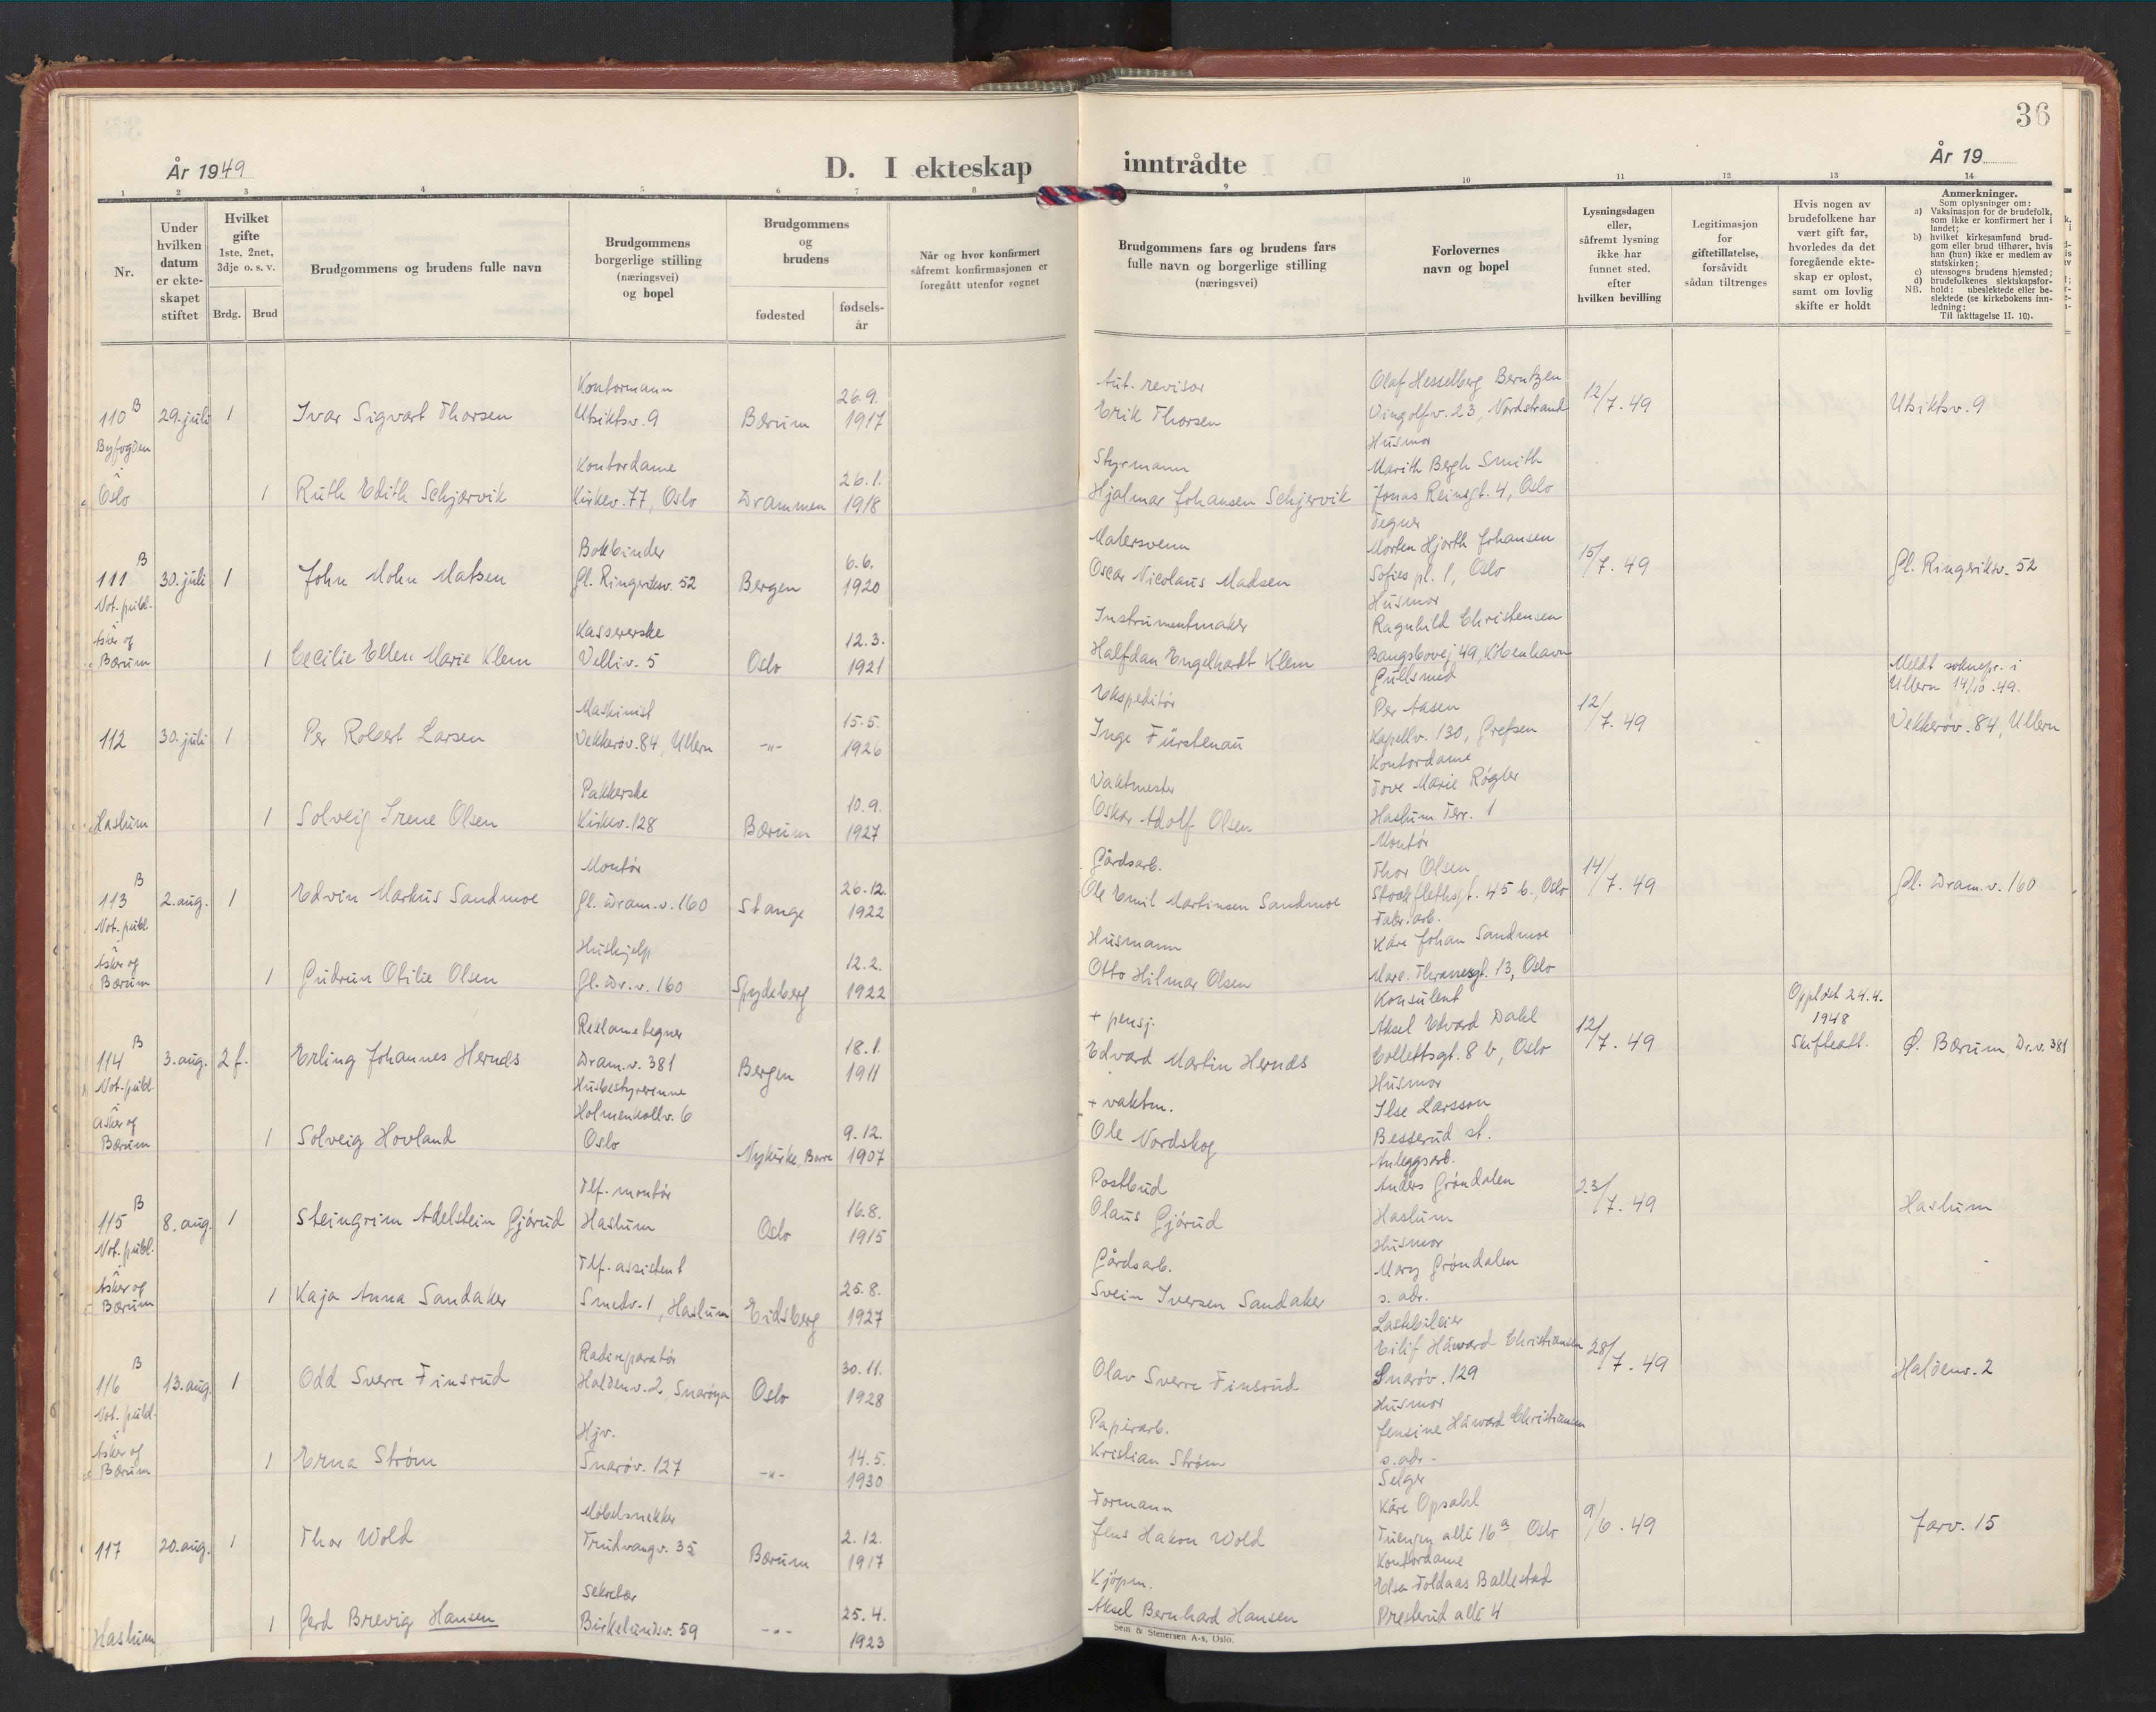 36
År 1949
D. I ekteskap inntrådte
År 19
1 2 3 4 5 6 7 8 9 10 11 12 13 14
Nr.
Under hvilken datum er ekteskapet stiftet
Hvilket gifte 1ste, 2net, 3dje o. s. v.
Brdg. Brud
Brudgommens og brudens fulle navn
Brudgommens borgerlige stilling (næringsvei) og bopel
Brudgommens og brudens
fødested
fødsels-år
Når og hvor konfirmert såfremt konfirmasjonen er foregått utenfor sognet
Brudgommens fars og brudens fars fulle navn og borgerlige stilling (næringsvei)
Forlovernes navn og bopel
Lysningsdagen eller, såfremt lysning ikke har funnet sted, efter hvilken bevilling
Legitimasjon for giftetillatelse, forsåvidt sådan tiltrenges
Hvis nogen av brudefolkene har vært gift før, hvorledes da det foregående ekteskap er opløst, samt om lovlig skifte er holdt
Anmerkninger.
Som oplysninger om:
a) Vaksinasjon for de brudefolk, som ikke er konfirmert her i landet;
b) hvilket kirkesamfund brudgom eller brud tilhører, hvis han (hun) ikke er medlem av statskirken;
c) utensogns brudens hjemsted;
d) brudefolkenes slektskapsforhold: ubeslektede eller beslektede (se kirkebokens innledning:
NB.
Til iakttagelse II. 10).
110 B 29. juli 1 Ivar Sigvart Thorsen
Kontormann
Utsiktsv. 9
Bærum 26.9. 1917
Aut. revisor
Erik Thorsen
Olaf Hesselberg Berntzen
Vingolfv. 23, Nordstrand
12/7. 49
Utsiktsv. 9
Byfogden i Oslo
1 Ruth Edith Schjervik
Kontordame
Kirkev. 77, Oslo
Drammen 26.1. 1918
Styrmann
Hjalmar Johansen Schjervik
Husmor
Marith Bergh Smith
Jonas Reinsgt. 4, Oslo
111 B 30. juli 1 John Mohn Matsen
Bokbinder
Gl. Ringeriksv. 52
Bergen 6.6. 1920
Malersvenn
Oscar Nicolaus Madsen
Tegner
Morten Hjorth Johansen
Sofies pl. 1, Oslo
15/7. 49
Gl. Ringeriksv. 52
Not. publ. i Asker og Bærum
1 Cecilie Ellen Marie Klem
Kassererske
Velliv. 5
Oslo 12.3. 1921
Instrumentmaker
Halfdan Engelhardt Klem
Husmor
Ragnhild Christensen
Bangsbovej 49, København
112 30. juli 1 Per Robert Larsen
Maskinist
Vekkerøv. 84, Ullern
-"- 15.5. 1926
Ekspeditør
Inge Fürstenau
Gullsmed
Per Aasen
Kapellv. 130, Grefsen
12/7. 49
Meldt soknepr. i
Ullern 14/10. 49.
Vekkerøv. 84, Ullern
Haslum
1 Solveig Irene Olsen
Pakkerske
Kirkev. 128
Bærum 10.9. 1927
Vaktmester
Oskar Adolf Olsen
Kontordame
Tove Marie Røgler
Haslum Terr. 1
113 B 2. aug. 1 Edvin Markus Sandmoe
Montør
Gl. Dram.v. 160
Stange 26.12. 1922
Gårdsarb.
Ole Emil Martinsen Sandmoe
Montør
Thor Olsen
Stockflethsgt. 45 b., Oslo
14/7. 49
Gl. Dram.v. 160
Not. publ. i Asker og Bærum
1 Gudrun Otilie Olsen
Hushjelp
Gl. Dr.v. 160
Spydeberg 12.2. 1922
Husmann
Otto Hilmar Olsen
Fabr. arb.
Kåre Johan Sandmoe
Marc. Thranesgt. 13, Oslo
114 B 3. aug. 2 f. Erling Johannes Hernæs
Reklametegner
Dram.v. 381
Bergen 18.1. 1911
+ pensj.
Edvard Martin Hernæs
Konsulent
Aksel Edvard Dahl
Collettsgt. 8 b, Oslo
12/7. 49
Oppløst 24.4.
1948
Skifteatt.
Ø. Bærum, Dr.v. 381
Not. publ. i Asker og Bærum
1 Solveig Hovland
Husbestyrerinne
Holmenkollv. 6
Oslo
Nykirke, Borre 9.12. 1907
+ vaktm.
Ole Nordskog
Husmor
Ilse Larsson
Besserud st.
115 B 8. aug. 1 Steingrim Adelstein Gjørud
Tlf. montør
Haslum
Oslo 16.8. 1915
Postbud
Olaus Gjørud
Anleggsarb.
Anders Grøndalen
Haslum
23/7. 49
Haslum
Not. publ. i Asker og Bærum
1 Kaja Anna Sandaker
Tlf. assistent
Smedv. 1, Haslum
Eidsberg 25.8. 1927
Gårdsarb.
Svein Iversen Sandaker
Husmor
Mary Grøndalen
s. adr.
116 B 13. aug. 1 Odd Sverre Finsrud
Radioreparatør
Haldenv. 2, Snarøya
Oslo 30.11. 1928
Olav Sverre Finsrud
Lastebileier
Eilif Håvard Christiansen
Snarøv. 129
28/7. 49
Haldenv. 2
Not. publ. i Asker og Bærum
1 Erna Strøm
Hjv.
Snarøv. 127
-"- 14.5. 1930
Papirarb.
Kristian Strøm
Husmor
Jensine Håvard Christiansen
s. adr.
117 20. aug. 1 Thor Wold
Møbelsnekker
Trudvangv. 35
Bærum 2.12. 1917
Formann
Jens Hakon Wold
Selger
Kåre Opsahl
Tuengen allé 16 a, Oslo
9/6. 49
Jarv. 15
Haslum
1 Gerd Brevig Hansen
Sekretær
Birkelundsv. 59
-"- 25.4. 1923
Kjøpm.
Aksel Bernhard Hansen
Kontordame
Elsa Foldaas Ballestad
Presterud allé 4
Sem & Stenersen A-s, Oslo.